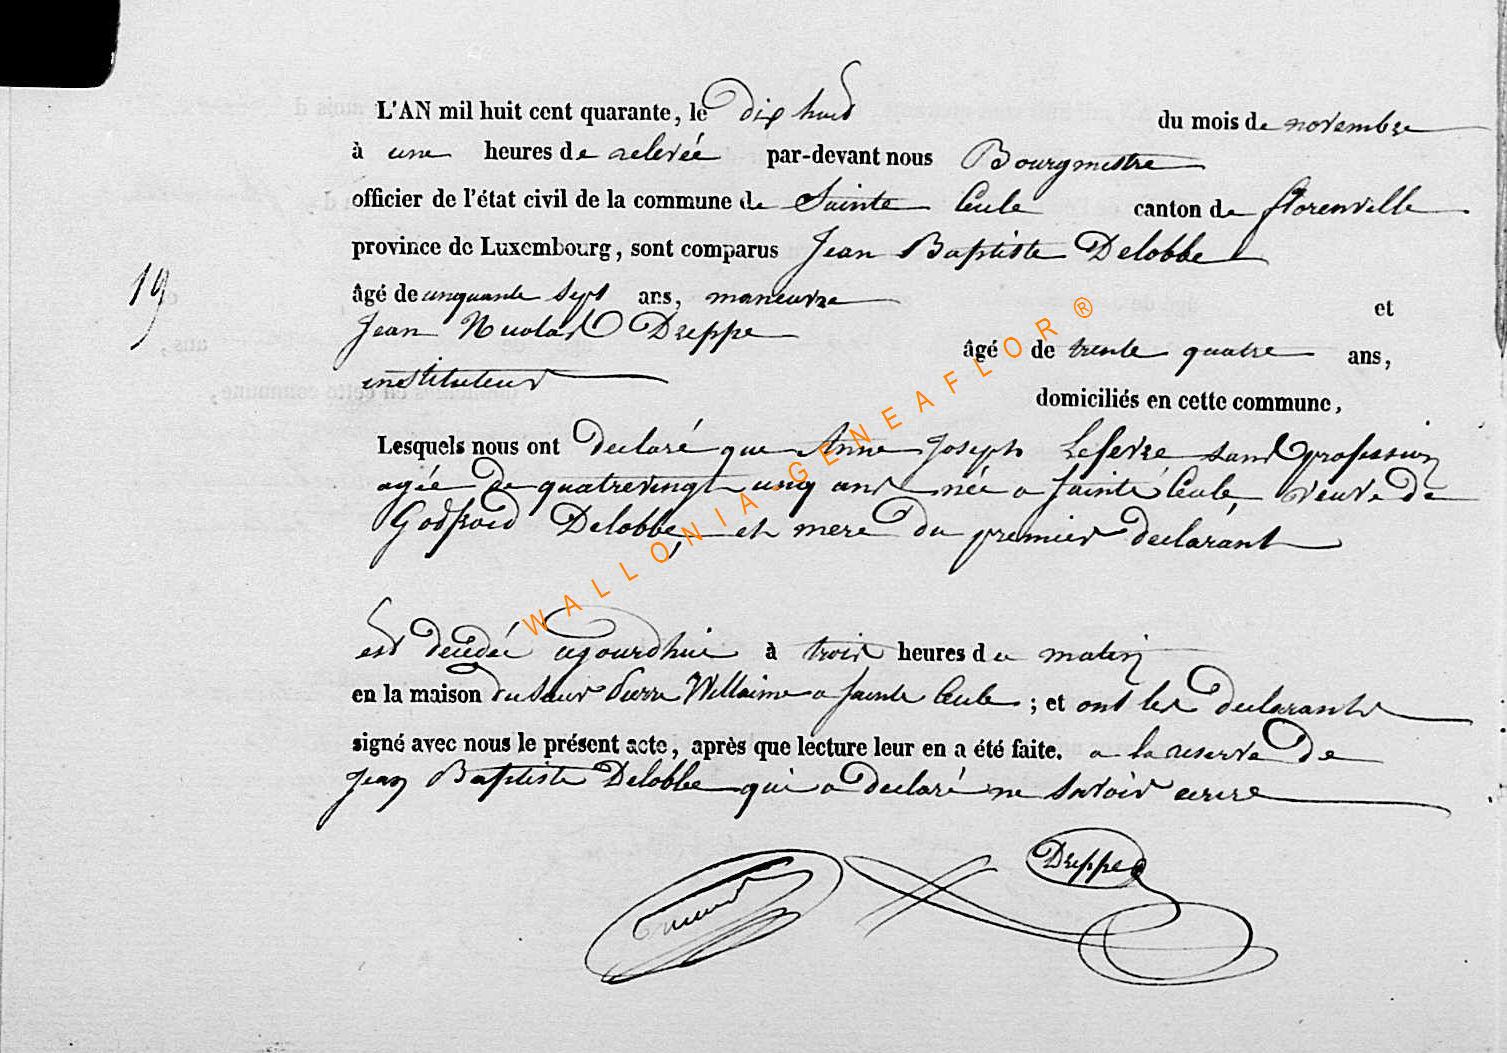 L'AN mil huit cent quarante, le dix huit du mois de novembre
à une heures de relevée par-devant nous Bourgmestre
officier de l'état civil de la commune de Sainte Cécile canton de florenville
province de Luxembourg, sont comparus Jean Baptiste Delobbe
19
âgé de cinquante sept ans, manœuvre et
Jean Nicolas Dreppe âgé de trente quatre ans,
instituteur domiciliés en cette commune,
Lesquels nous ont declaré que Anne Joseph Lefevre sans profession
agée de quatrevingt cinq ans née a Sainte Cécile veuve de
Godfroid Delobbe, et mere du premier declarant
est decédée ajourdhui à trois heures du matin
en la maison du sieur Pierre Willaime a Sainte Cécile ; et ont les declarants
signé avec nous le présent acte, après que lecture leur en a été faite. a la reserve de
Jean Baptiste Delobbe qui a declaré ne savoir ecrire
Dreppe
WALLONIA-GENEAFLOR®